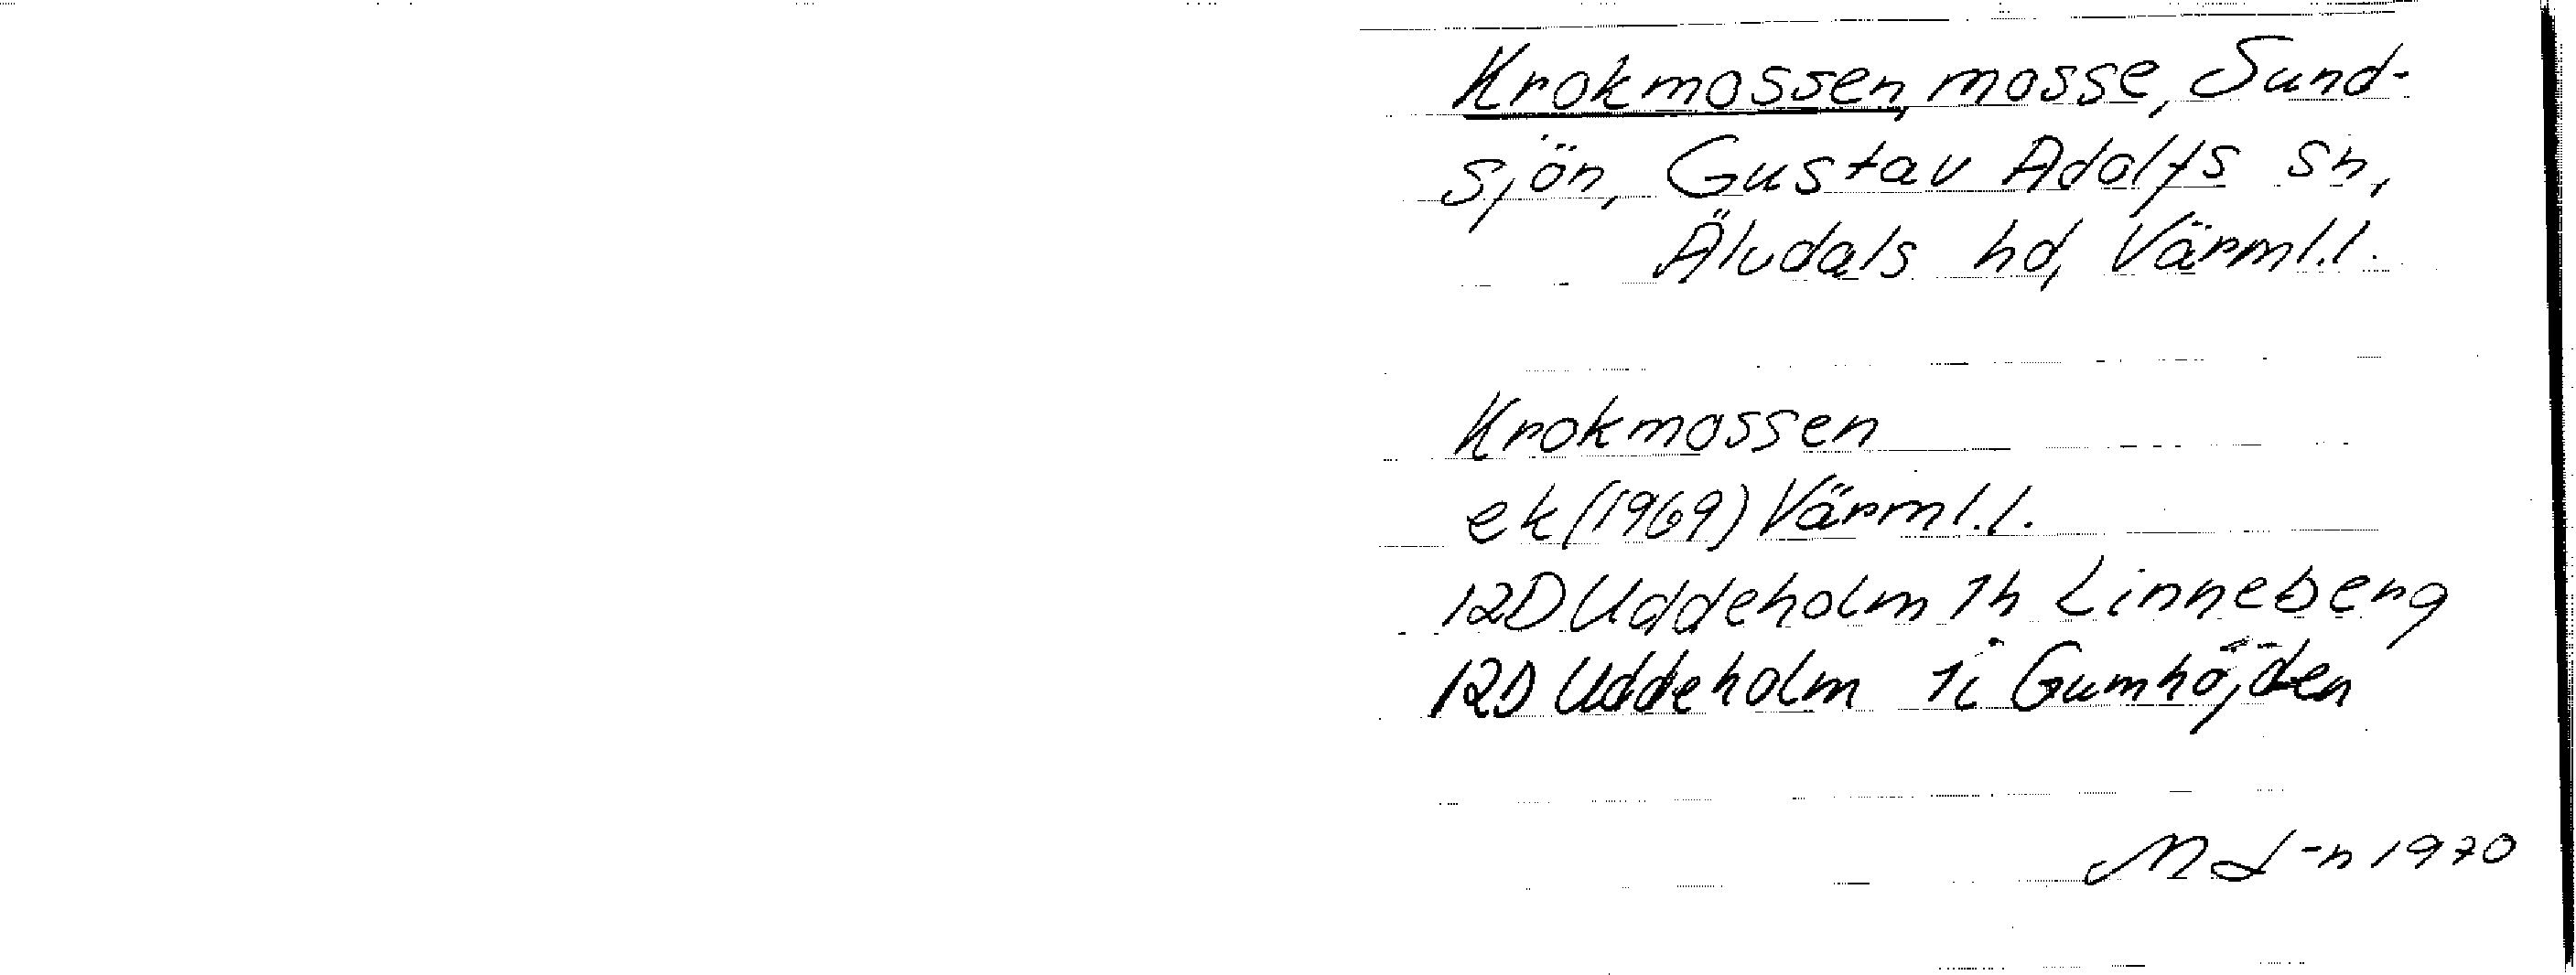 Krokmossen, mosse, Sund-
sjön, Gustav Adolfs sn,
Älvdals hd, Värml.l.
Krokmossen
ek (1969) Värml.l.
12D Uddeholm 1h Linneberg
12D Uddeholm 1i Gumhöjden
M L-n 1970